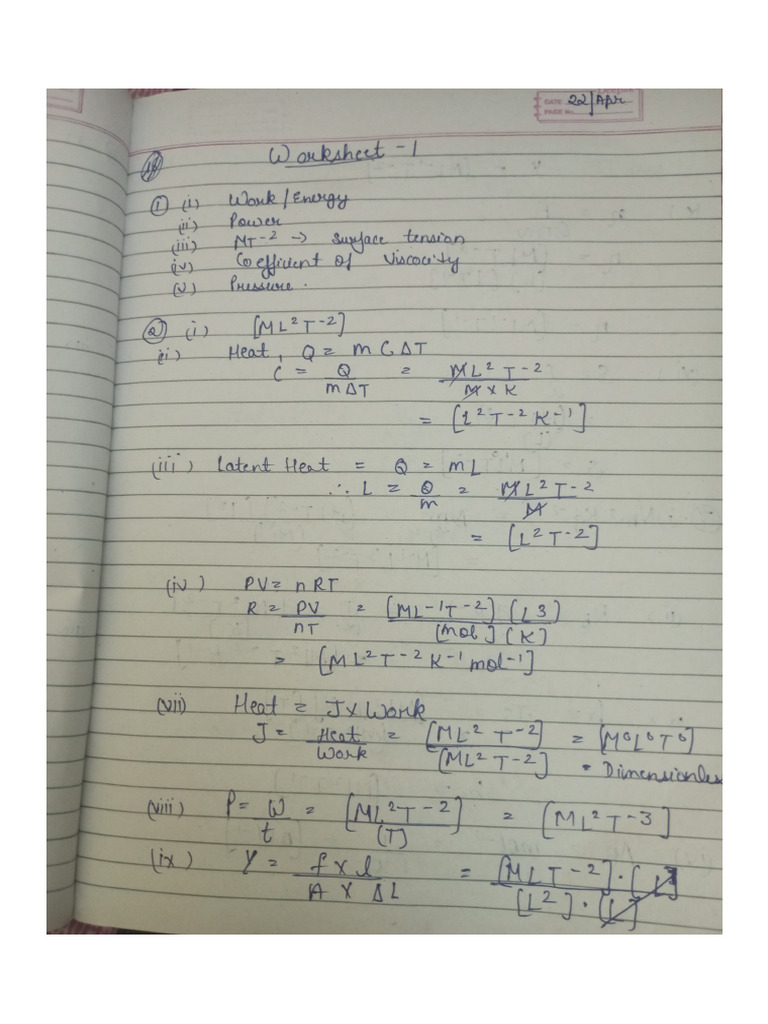 DATE 22/Apr
PAGE No.
Worksheet -1
① (i) Work/Energy
(ii) Power
(iii) MT-2 → Surface tension
(iv) Coefficient of Viscocity
(v) Pressure.
② (i) [ML²T-2]
(ii) Heat, Q = mCΔT
C = Q/mΔT = ML²T-2/M×K
= [L²T-2K-1]
(iii) Latent Heat = Q = mL
∴ L = Q/m = ML²T-2/M
= [L²T-2]
(iv) PV = nRT
R = PV/nT = [ML-1T-2](L3)/[mol](K)
= [ML²T-2K-1mol-1]
(vii) Heat = J×Work
J = Heat/Work = [ML²T-2]/[ML²T-2] = [M⁰L⁰T⁰]
= Dimensionless
(viii) P = W/t = [ML²T-2]/(T) = [ML²T-3]
(ix) Y = f×l/A×ΔL = [MLT-2].[L]/[L²].[L]